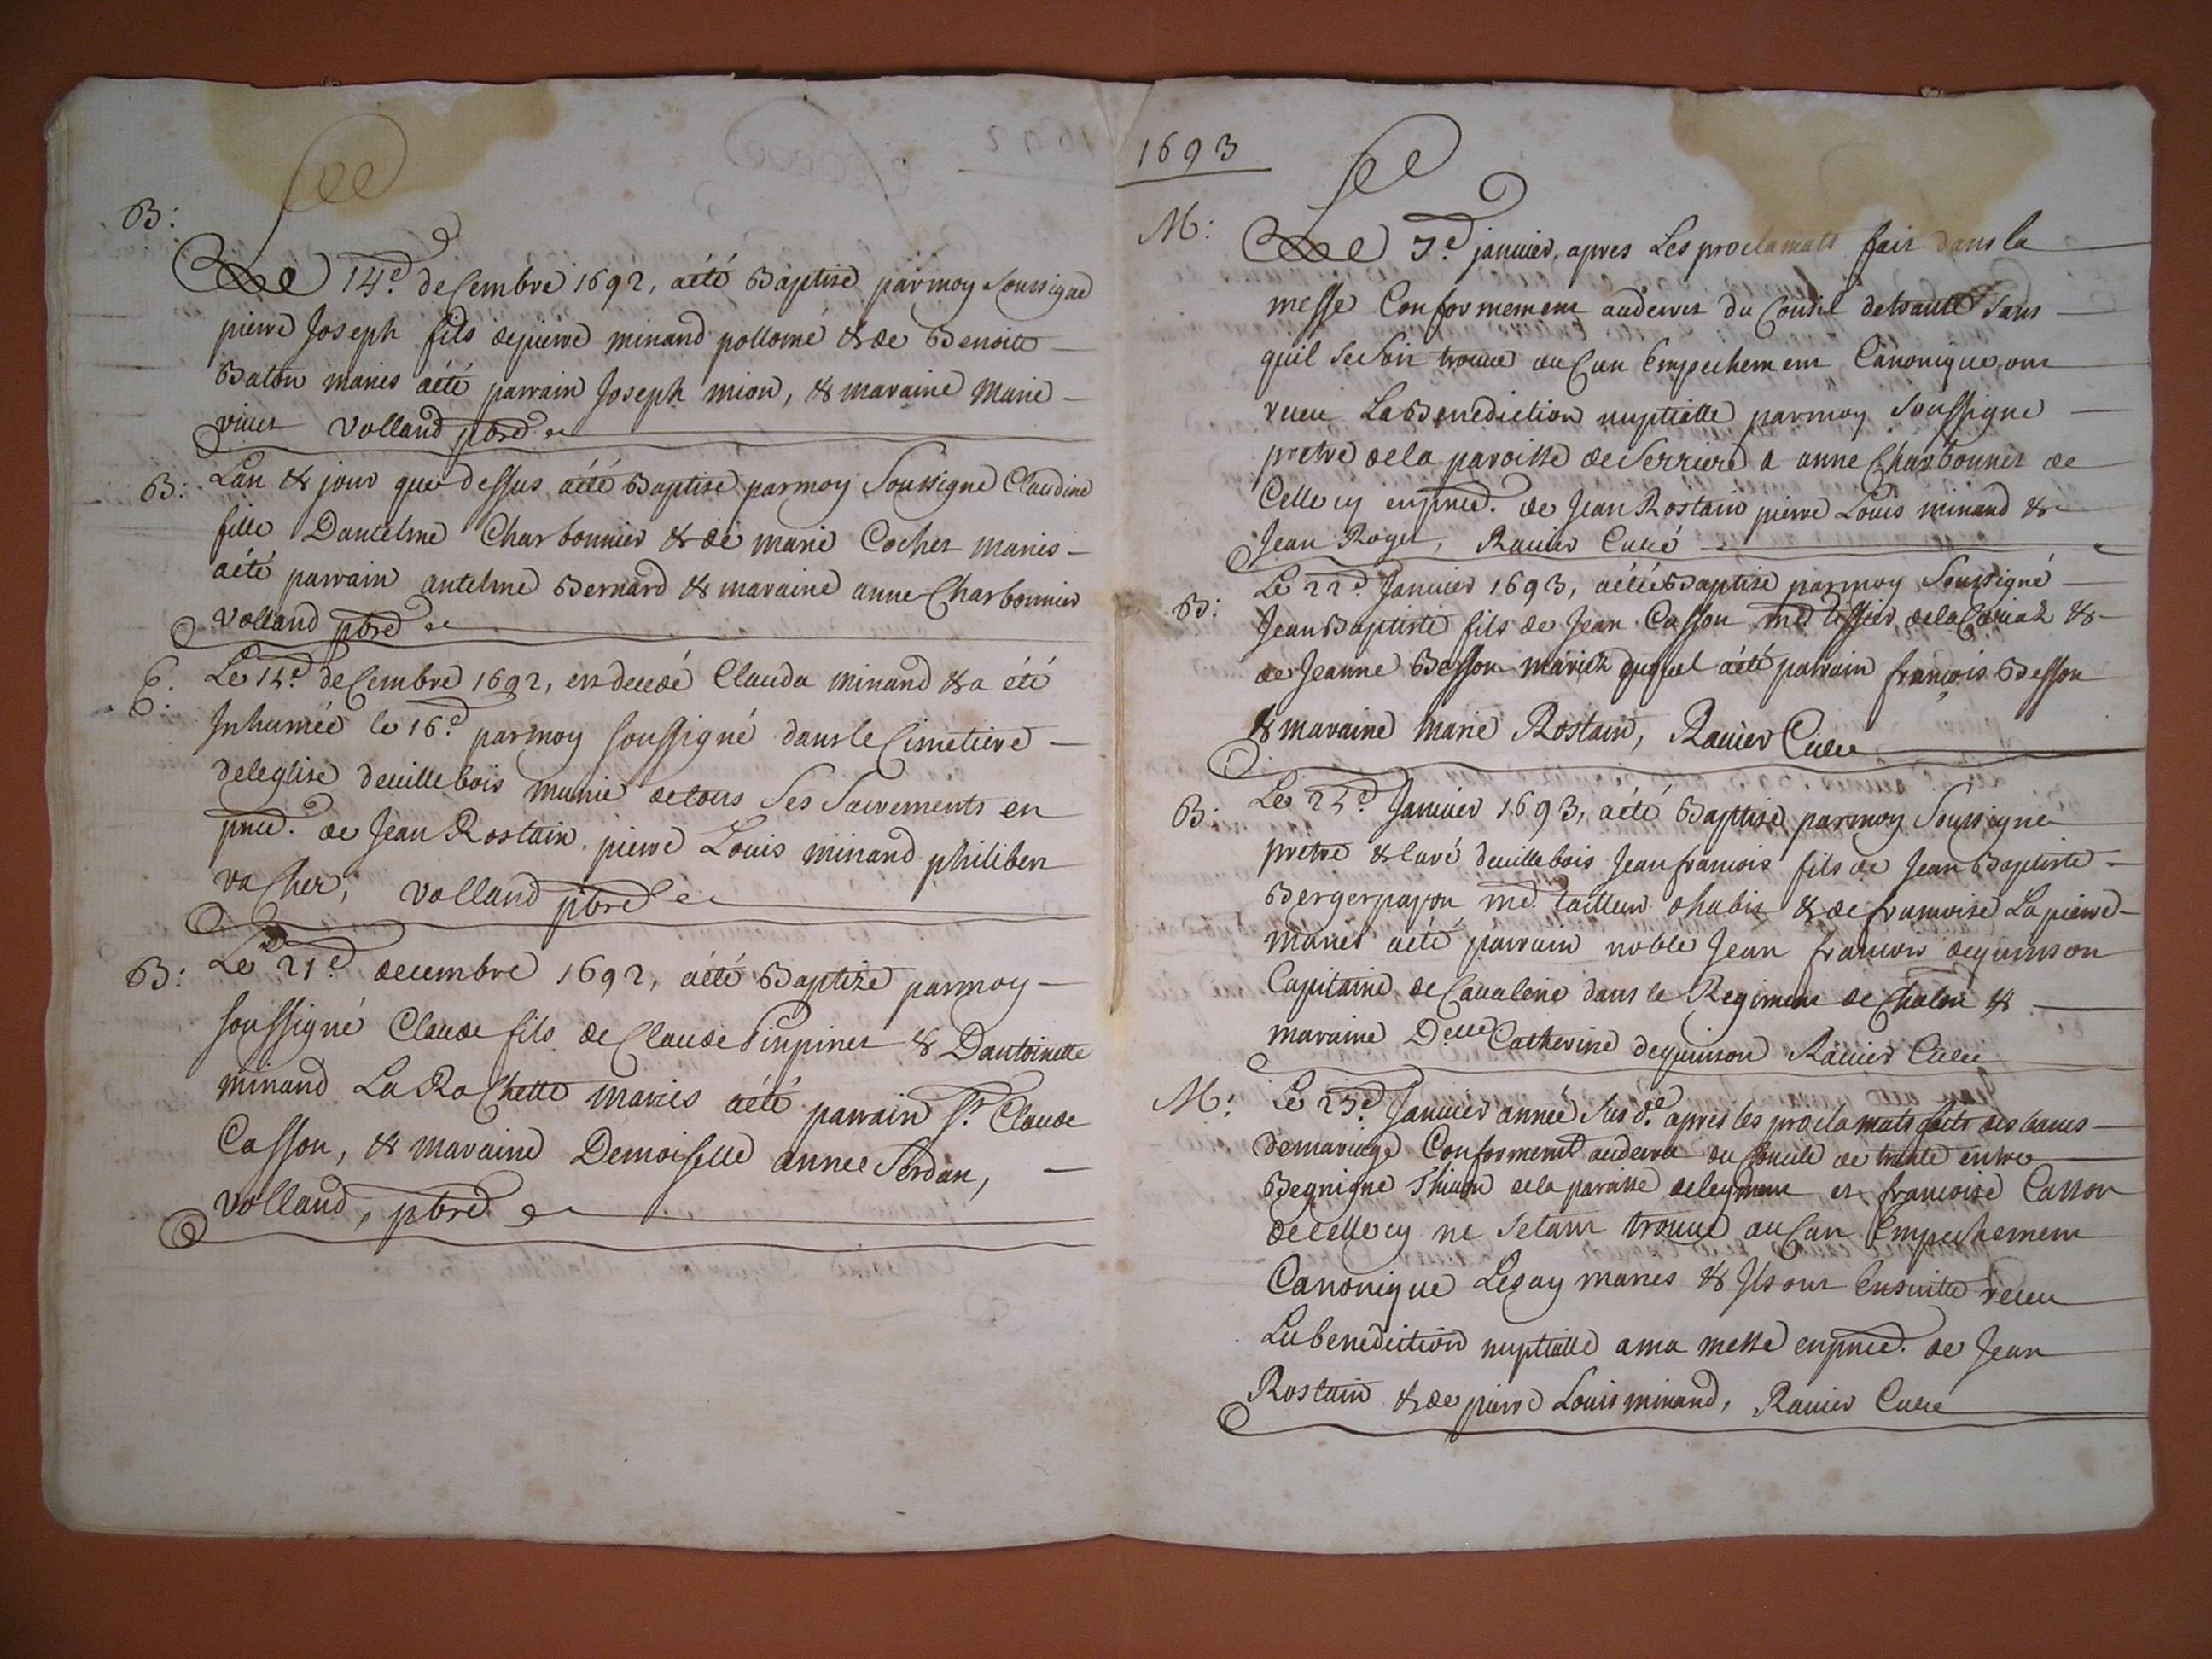 B:
Le 14e. decembre 1692, aété Baptisé parmoy Soussigné
pierre Joseph fils depierre minand pollomé & de Benoitte
Baton mariés aété parrain Joseph mion, & maraine marie
Volland pbre
B: Lan & jour que dessus aété Baptisé parmoy Soussigné Claudine
fille Dantelme Charbonnier & de marie Cochet mariés
aété parrain antelme Bernard & maraine anne Charbonnier
Volland pbre
Le decembre 1692, est decedé Clauda minand & a été
Inhumée le 16e. parmoy soussigné dans le Cimetiere
deleglise devillebois munie de tous Ses Sacrements en
pnce. de Jean Rostain, pierre Louis minand philibert
vacher, Volland pbre
B: Le 21e. decembre 1692, aété Baptizé parmoy
soussigné Claude fils de Claude Pinpinet & Dantoinette
minand La Rochette mariés aété parrain Sr. Claude
Casson, & maraine Demoiselle annee Serdan,
Volland, pbre
1693
M: Le 7e. janvier, apres Les proclamats fait dans la
messe Conformement audecret du Concil detrante Sans
quil SeSoit trouvé auCun Empechement Canonique, ont
receu La Benediction nuptialle parmoy Soussigné
pretre dela paroisse deSerriere a anne Charbonnier de
Celle cy enpnce. de Jean Rostain pierre Louis minand &
Jean Roget, Ravier Curé
B: Le 22e. Janvier 1693, aétéBaptisé parmoy Soussigné
JeanBaptiste fils de Jean Casson md tissier, dela &
de Jeanne Besson mariés duquel aété parrain françois Besson
& maraine marie Rostain, Ravier Curé
B: Le Janvier 1693, aété Baptisé parmoy Soussigné
pretre & Curé devillebois Jeanfrancois fils de Jean Baptiste
Bergerpapon, md. tailleur dhabit & de françoise Lapierre
mariés aété parrain noble Jean francois dequinson
Capitaine de Cavalerie dans le Regiment de Chalon &
maraine Delle Catherine dequinson Ravier Curé
M: Le Janvier année Sus de. apres les proclamats faits des bancs
demariage Conformemt audecret du Concile de trante entre
Begnigne Thivon dela paroisse deleyment et françoise Casson
decelle cy ne Setant trouvé auCun Empechement
Canonique Lesay mariés & Ils ont Ensuitte receu
Labenediction nuptialle ama messe enpnce. de Jean
Rostain & de pierre Louis minand, Ravier Curé